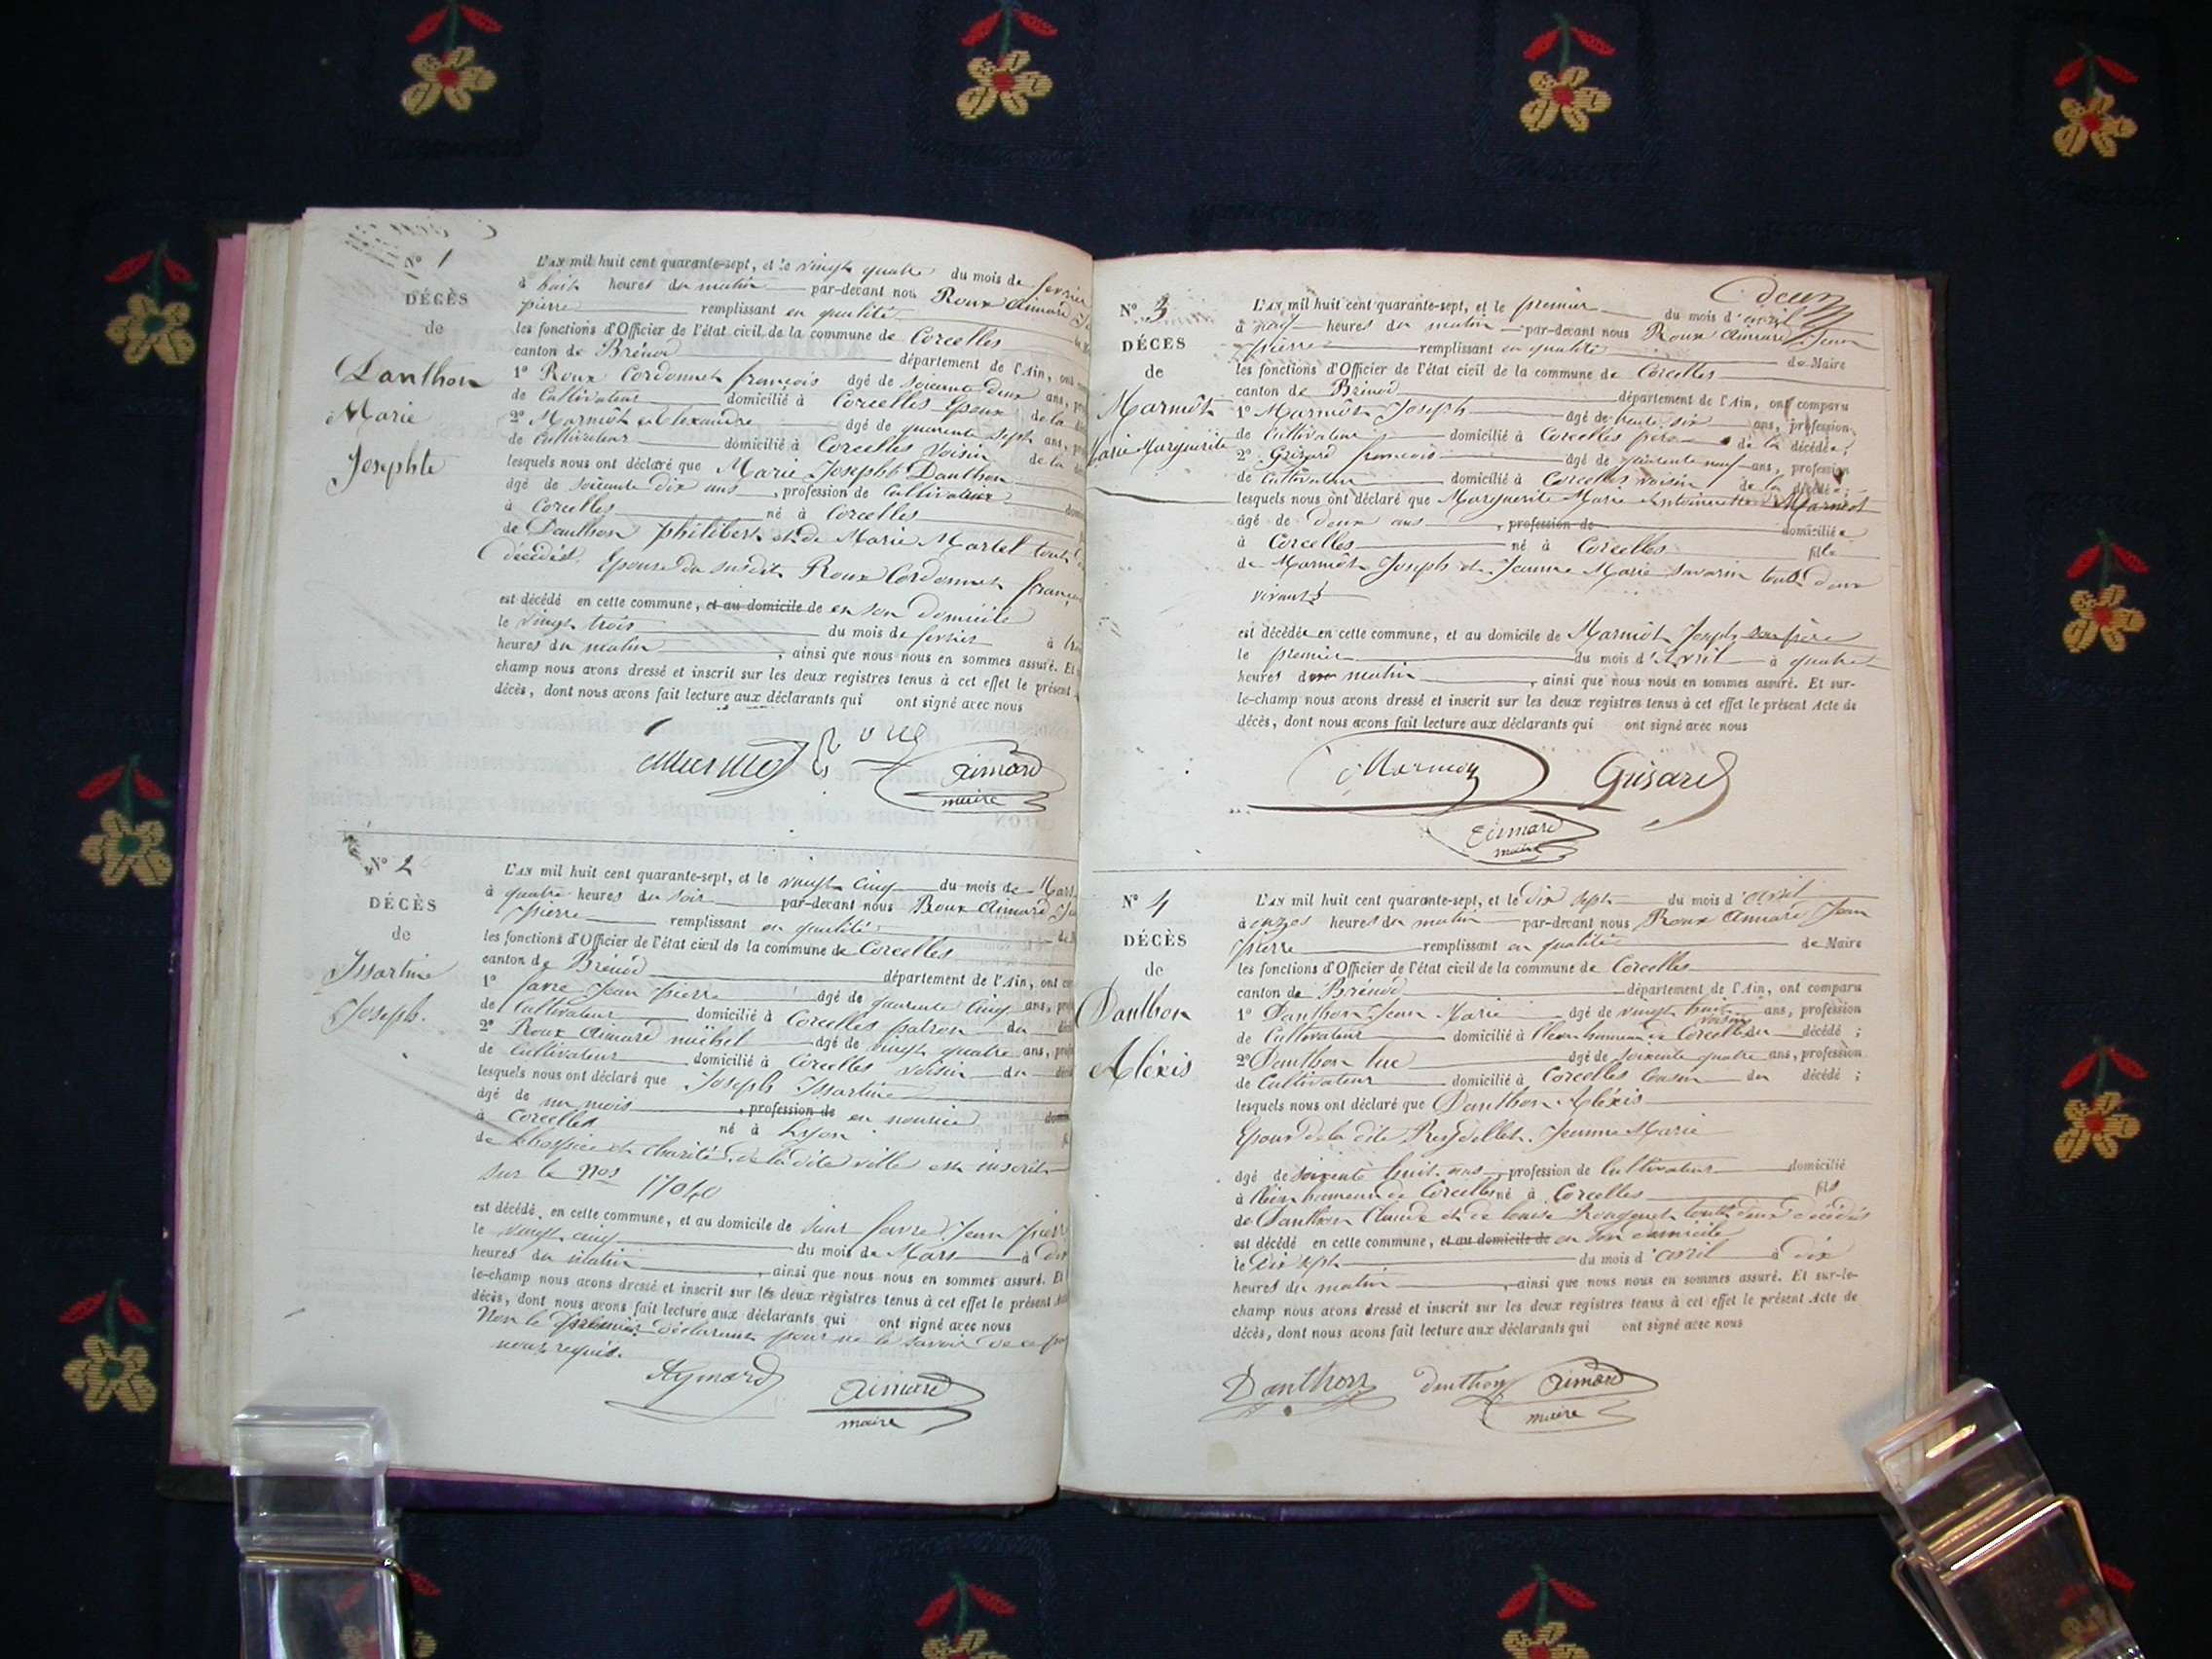 N° 1
DÉCÈS
de
Danthon
Marie
Josephte
L'AN mil huit cent quarante-sept, et le vingt quatre du mois de fevrier
à huit heures du matin par-devant nous Roux Aimard
pierre remplissant en qualité
les fonctions d'Officier de l'état civil de la commune de Corcelles
canton de Brénod département de l'Ain, ont
1° Roux Cordonnet françois âgé de soixante deux ans,
de Cultivateur domicilié à Corcelles Epoux de la
2° Marmot Alexandre âgé de quarente sept ans,
de Cultivateur domicilié à Corcelles Voisin de la
lesquels nous ont déclaré que Marie Josephte Danthon
âgé de soixante dix ans, profession de Cultivateur
à Corcelles né à Corcelles
de Danthon philibert et de Marie Martel tout
décédés. Epouse du susdit Roux Cordonnet
est décédé en cette commune, et au domicile de en son domicile
le vingt trois du mois de fevrier à
heures du matin, ainsi que nous nous en sommes assuré. Et
champ nous avons dressé et inscrit sur les deux registres tenus à cet effet le présent
décès, dont nous avons fait lecture aux déclarants qui ont signé avec nous
Aimard
maire
N° 2
DÉCÈS
de
Issartine
Joseph.
L'AN mil huit cent quarante-sept, et le vingt cinq du mois de Mars
à quatre heures du soir par-devant nous Roux Aimard
pierre remplissant en qualité
les fonctions d'Officier de l'état civil de la commune de Corcelles
canton de Brénod département de l'Ain, ont
1° favre Jean pierre âgé de quarente cinq ans,
de Cultivateur domicilié à Corcelles patron du
2° Roux Aimard michel âgé de vingt quatre ans,
de Cultivateur domicilié à Corcelles Voisin du
lesquels nous ont déclaré que Joseph Issartine
âgé de un mois, profession de en nourice
à Corcelles né à Lyon
de Lhospice et charité de la dite ville est inscrit
sur le Nos 17040
est décédé en cette commune, et au domicile de favre Jean pierre
le vingt cinq du mois de Mars à
heures du matin, ainsi que nous nous en sommes assuré. Et
le-champ nous avons dressé et inscrit sur les deux régistres tenus à cet effet le présent
décès, dont nous avons fait lecture aux déclarants qui ont signé avec nous
Non le premier déclarant pour ne le savoir de ce
nous requis.
Aymard Aimard
maire
deux
N° 3
DÉCÈS
de
Marmot
Marie Marguerite
L'AN mil huit cent quarante-sept, et le premier du mois d'avril
à neuf heures du matin par-devant nous Roux Aimard Jean
pierre remplissant en qualité de Maire
les fonctions d'Officier de l'état civil de la commune de Corcelles
canton de Brénod département de l'Ain, ont comparu
1° Marmot Joseph âgé de trente six ans, profession
de Cultivateur domicilié à Corcelles père de la décédée;
2° Grisard françois âgé de quarente neuf ans, profession
de Cultivateur domicilié à Corcelles voisin de la décédée;
lesquels nous ont déclaré que Marguerite Marie Antoinette Marmot
âgé de deux ans, profession de domiciliée
à Corcelles né à Corcelles fille
de Marmot Joseph et Jeanne Marie Savarin tout deux
vivants
est décédée en cette commune, et au domicile de Marmot Joseph son père
le premier du mois d'Avril à quatre
heures du matin, ainsi que nous nous en sommes assuré. Et sur-
le-champ nous avons dressé et inscrit sur les deux registres tenus à cet effet le présent Acte de
décès, dont nous avons fait lecture aux déclarants qui ont signé avec nous
Marmot Grisard
Aimard
maire
N° 4
DÉCÈS
de
Danthon
Aléxis
L'AN mil huit cent quarante-sept, et le Dix sept du mois d'avril
à onzes heures du matin par-devant nous Roux Aimard Jean
pierre remplissant en qualité de Maire
les fonctions d'Officier de l'état civil de la commune de Corcelles
canton de Brénod département de l'Ain, ont comparu
1° Danthon Jean Marie âgé de vingt huit ans, profession
voisin
de Cultivateur domicilié à hameau de Corcelles du décédé;
2° Danthon luc âgé de soixente quatre ans, profession
de Cultivateur domicilié à Corcelles Cousin du décédé;
lesquels nous ont déclaré que Danthon Aléxis
Epoux de la dite Jeanne Marie
âgé de soixente huit ans, profession de Cultivateur domicilié
à hameau de Corcelles né à Corcelles fils
de Danthon Claude et de louise tout deux décédés
est décédé en cette commune, et au domicile de en son domicile
le Dix sept du mois d'avril à dix
heures du matin, ainsi que nous nous en sommes assuré. Et sur-le-
champ nous avons dressé et inscrit sur les deux registres tenus à cet effet le présent Acte de
décès, dont nous avons fait lecture aux déclarants qui ont signé avec nous
Danthon danthon Aimard
maire